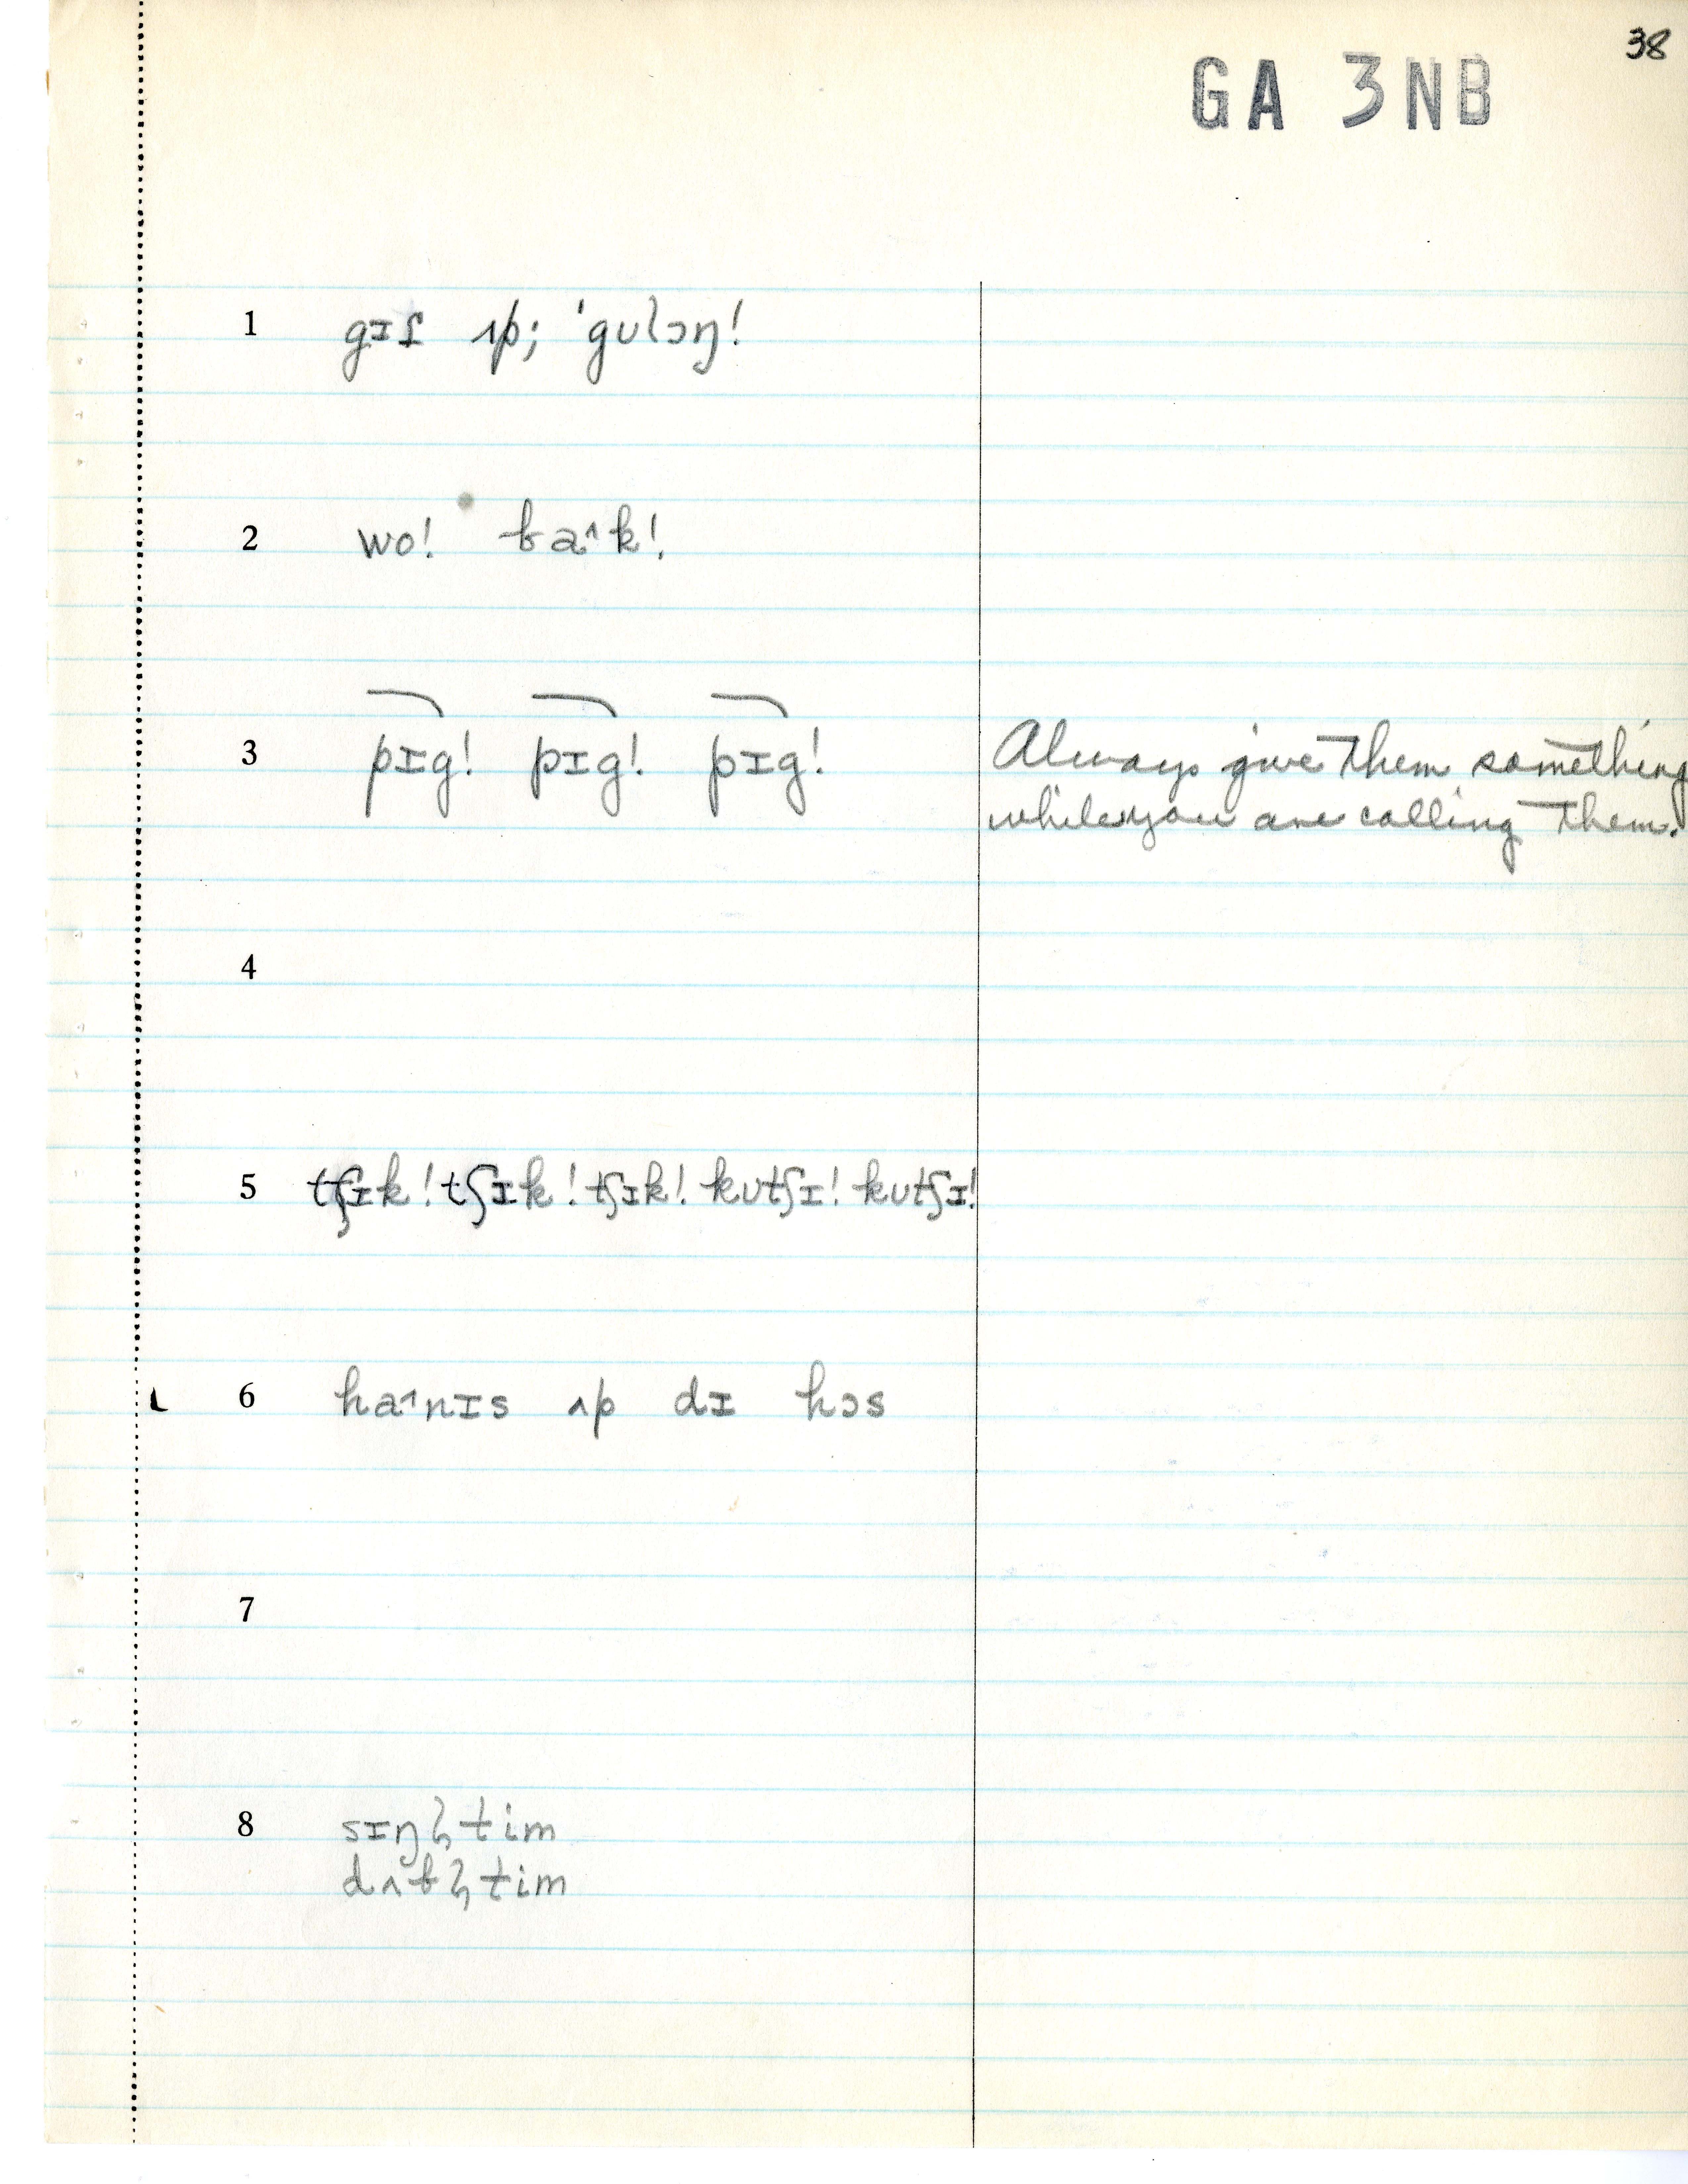 38
GA 3NB
1 gɪɟ ʌp; 'gulɔŋ!
2 wo! ba^k!
3 pɪg! pɪg! pɪg! Always give them something
while you are calling them.
4
5 tʃɪk! tʃɪk! tʃɪk! kutʃɪ! kutʃɪ!
6 ha^nɪs ʌp dɪ hɔs
7
8 sɪŋl̩tim
dʌbl̩tim